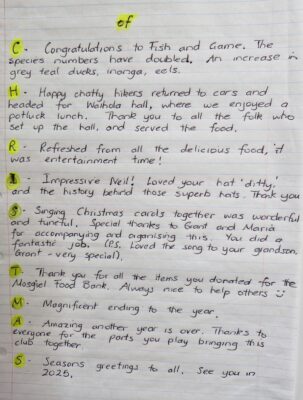 of
C - Congratulations to Fish and Game. The
species numbers have doubled. An increase in
grey teal ducks, inanga, eels.
H - Happy chatty hikers returned to cars and
headed for Waihola hall, where we enjoyed a
potluck lunch. Thank you to all the folk who
set up the hall, and served the food.
R - Refreshed from all the delicious food, it
was entertainment time!
I - Impressive Neil! Loved your hat 'ditty'
and the history behind those superb hats. Thank you
S - Singing Christmas carols together was wonderful
and tuneful. Special thanks to Grant and Maria
for accompanying and organising this. You did a
fantastic job. (P.S. Loved the song to your grandson,
Grant - very special).
T - Thank you for all the items you donated for the
Mosgiel Food Bank. Always nice to help others
M - Magnificent ending to the year.
A - Amazing another year is over. Thanks to
everyone for the parts you play bringing this
club together
S - Seasons greetings to all. See you in
2025.